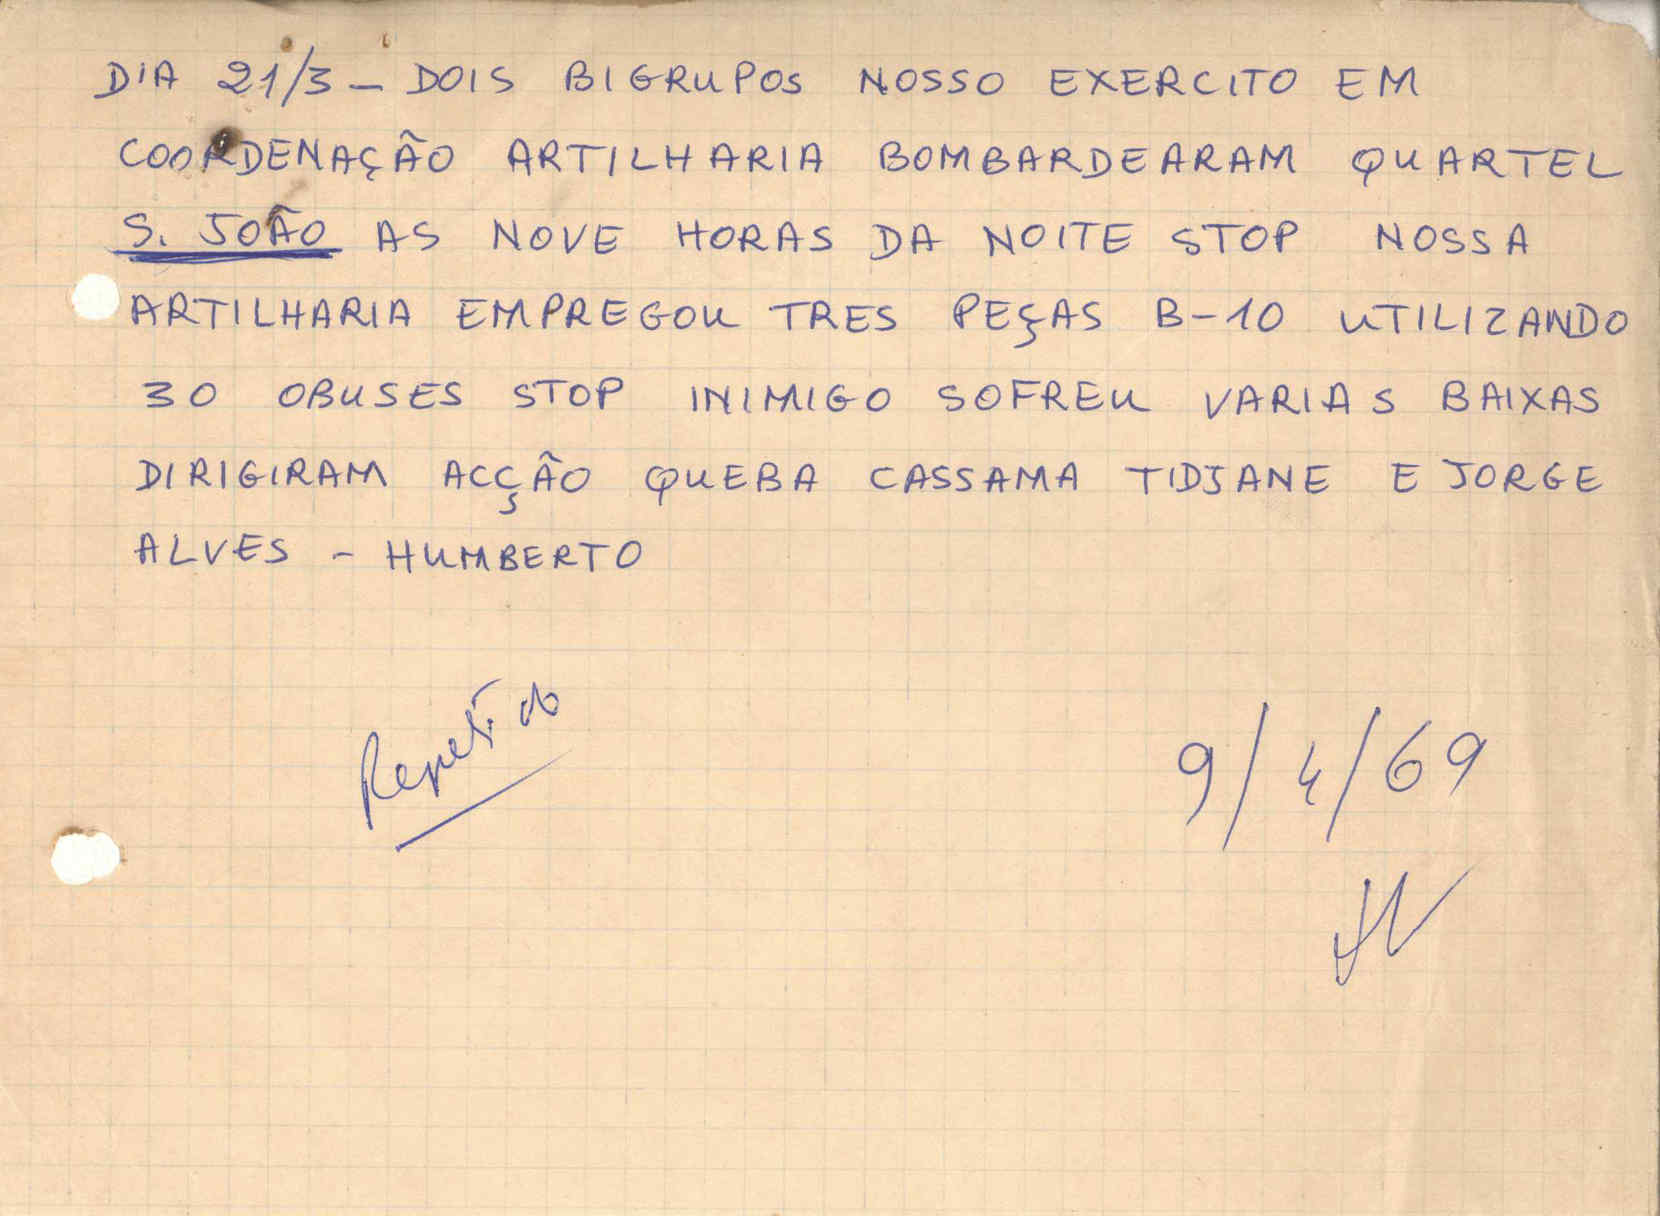 DIA 21/3 - DOIS BIGRUPOS NOSSO EXERCITO EM
COORDENAÇÃO ARTILHARIA BOMBARDEARAM QUARTEL
S. JOÃO AS NOVE HORAS DA NOITE STOP NOSSA
ARTILHARIA EMPREGOU TRES PEÇAS B-10 UTILIZANDO
30 OBUSES STOP INIMIGO SOFREU VARIAS BAIXAS
DIRIGIRAM ACÇÃO QUEBA CASSAMA TIDJANE E JORGE
ALVES - HUMBERTO
Repetido
9/4/69